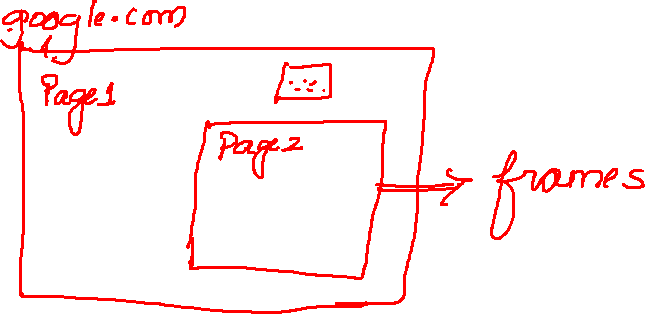 google.com
Page1
Page2
frames